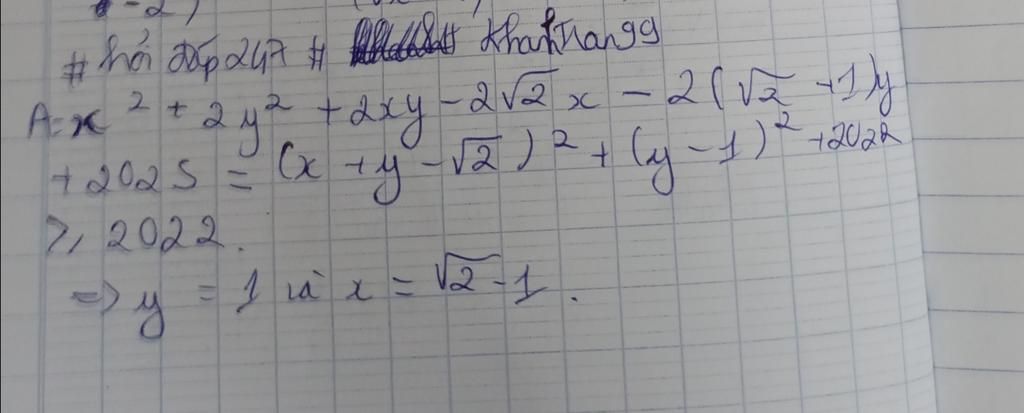 -2)
# hỏi đáp 247 # khanhxan99
A = x² + 2y² + 2xy - 2√2 x - 2(√2 + 1)y
+ 2025 = (x + y - √2)² + (y - 1)² + 2022
≥ 2022.
=> y = 1 và x = √2 - 1.